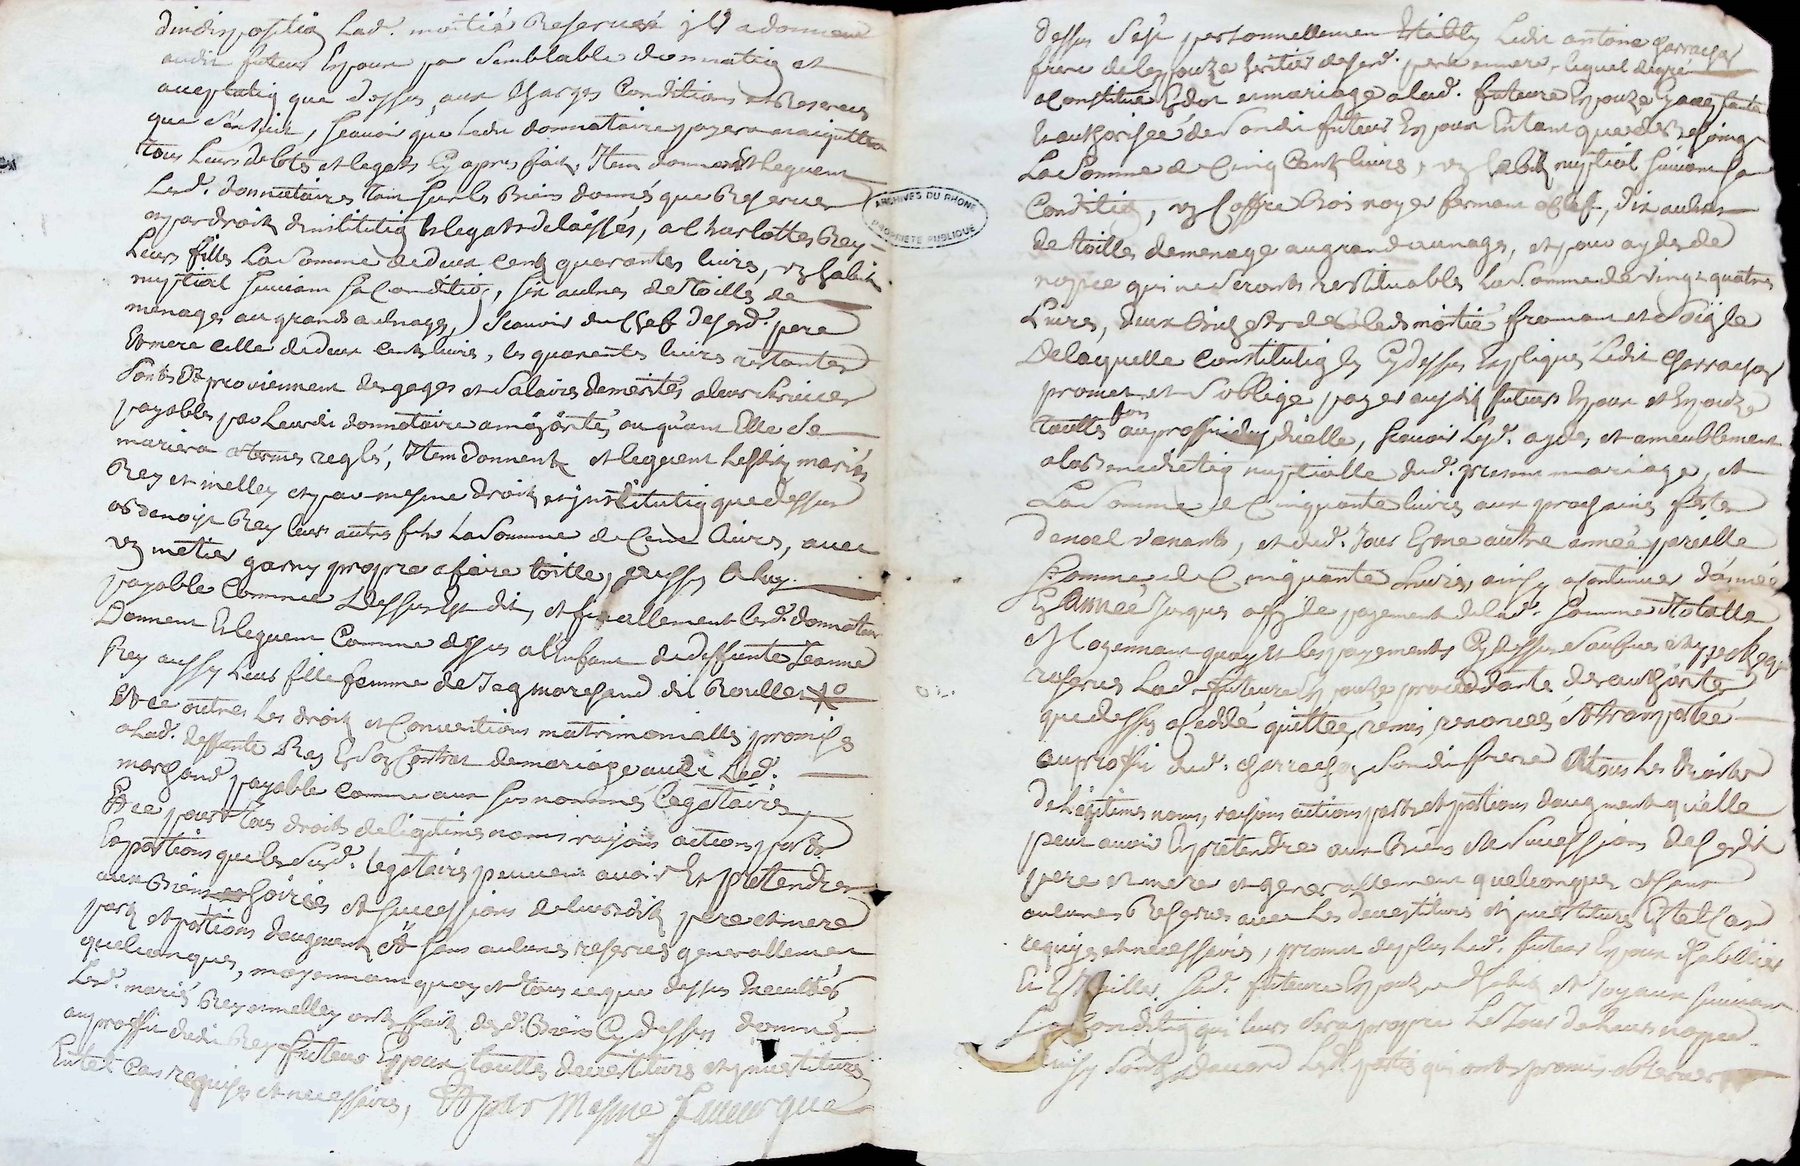 dindisposition lad. moitié Reservée il a donnera
audit futeur Expoux par semblable donnation et
acceptation que dessus, aux Charges Conditions et Reserves
que s'ensuit, scauoir que Ledit donnataire payera et aquittera
tous Leurs debts et legats Cy apres faits, Item donnent et leguent
Lesd. donnataires tant sur les Biens donnés que Reserues
et par droit d'institution et legats delaissés, a Charlottes Rey
Leurs filles La Somme de deux cents quarantes liures, un habit
nuptial suiuant sa Condition, six aulnes de toilles de
menages au grands aulnages, scauoir du Chef desesd. pere
Et mere celle de deux cents liures, les quarantes liures restantes
Sont Et proviennent des gages et Salaires demerités a leurs seruices
payables par Leurdit donnataire a majorités, ou qu'ant Elle se
mariera a termes reglé, Item donnent et leguent Lesdits mariés
Rey et melley et par mesme droit et institution que dessus
a Benoist Rey leur autre fils La Somme de Cent liures, avec
un metier garny propre a faire toille, aussy a luy
payable Comme dessus Est dit, et finallement lesd. donnateurs
Donnent Et leguent Comme dessus a l'enfant de deffunte Jeanne
Rey aussy Leur fille femme de Jaq marchand dit Roulle
Et ce outres Les droits et Conventions matrimonialles promises
a lad. deffunte Rey En son Contrat de mariage audit Led.
marchand payable comme aux susnommés legataires
Et ce pour tous droits de legitimes noms raisons actions parts
Et portions que les Susd. legataires peuuent auoir Et pretendres
aux Biens hoiries et successions de leursdits pere et mere
parts et portions d'augment Et sans aulcunes reserues generallement
quelconques, moyennant quoy et tout ce que dessus Executtés
Lesd. mariés Rey et melley ont faits desd. Biens Cy dessus donnés
au proffit dudit Rey futeur Expoux touttes deuestitures et inuestitures
En tel Cas requises et necessaires, Et par Mesme
ARCHIVES DU RHONE
PROPRIETE PUBLIQUE
dessus s'est personnellement Etably Ledit antoine Charrachon
frere de l'Expouze heritier desesd. pere et mere, lequel de gré
a Constitué En dot et mariage a lad. future Expouze Exaacceptante
Et authorisée de Sondit futeur Expoux En tant que de Besoing
La Somme de Cinq Cents liures, un habit nuptial suiuant sa
Condition, un Coffre bois noyer fermant a clef, dix aulnes
de toilles de menage au grand aunages, et pour aydes de
nopce qui ne seront restituables La Somme de vingt quatres
Liures, deux Bichets de Bled moitié froment et soigle
de laquelle constitution les Cy dessus Expliqués Ledit Charrachon
promet et s'oblige payer ausdits futeurs Expoux et Expouze
touttes fois au proffit d'icelle, scauoir Lesd. aydes et ameublement
a la Benediction nuptialle dud. present mariage, et
La Somme de Cinquante liures aux prochaines festes
de noel venants, et dud. Jour En une autre année pareille
Somme de Cinquante Liures, ainsy a Continuer d'année
En Année Jusques a fin de payement de lad. Somme totalle
Moyennant quoy Et les payements Cy dessus saufues et hypotheque
reserues Lad. future Expouze procedante de authorité
que dessus a Ceddé quittée, remis, renoncées Et transportée
au proffit dud. Charrachon Sondit frere Tous les Droits
De legitimes noms, raisons actions parts et portions daugment qu'elle
peut auoir Et pretendre aux Biens et Successions desesdit
pere et mere et generallement quelconques et sans
aulcunes Reserues auec Les deuestitures et inuestitures En tel Cas
requises et necessaires, promet de plus Led. futeur Expoux d'habiller
Et Enjoailler Sad. future Expouze d'habits et Joyaux suiuant
La Condition qui leurs sera propre Le Jour de leurs nopces
ainsy sont d'accord Lesd. parties qui ont promis observer